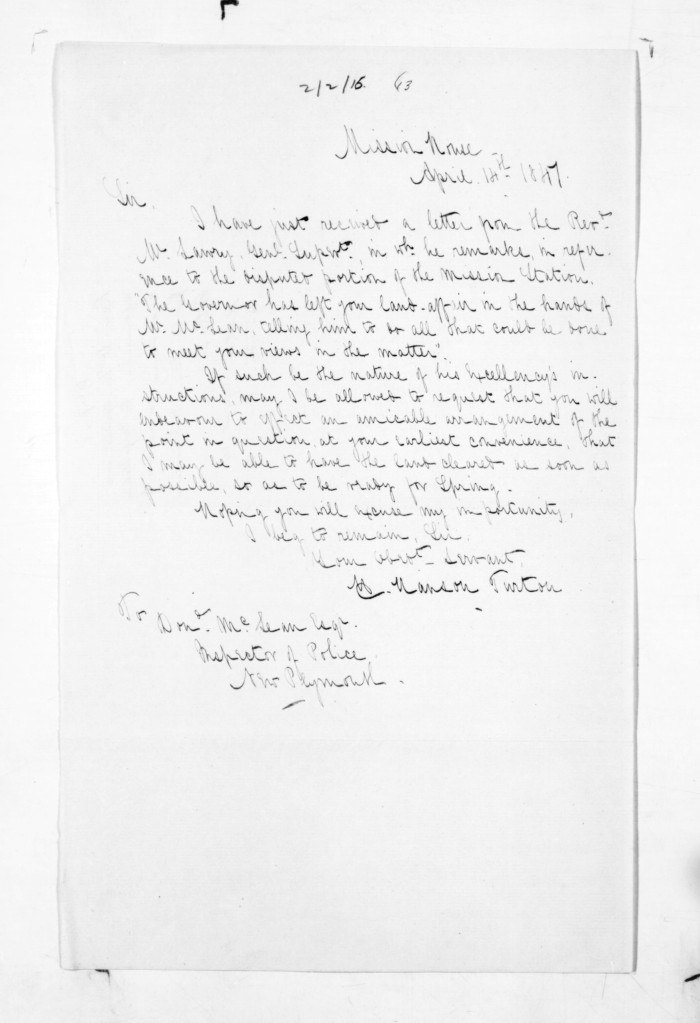 2/2/16. 63
Mission House
April 14th 1847.
Sir,
I have just received a letter from the Revd.
Mr. Lawry, Genl. Supert., in wh. he remarks, in refer-
ence to the disputed portion of the Mission Station,
"The Governor has left your land-affair in the hands of
Mr. McLean, telling him to do all that could be done
to meet your views in the matter".
If such be the nature of his Excellency's in-
structions, may I be allowed to request that you will
endeavour to effect an amicable arrangement of the
point in question, at your earliest convenience, that
I may be able to have the land cleared as soon as
possible, so as to be ready for Spring.
Hoping you will excuse my importunity,
I beg to remain, Sir,
Your obedt. Servant,
H. Hanson Turton
To
Dond. McLean Esqr.
Inspector of Police
New Plymouth.